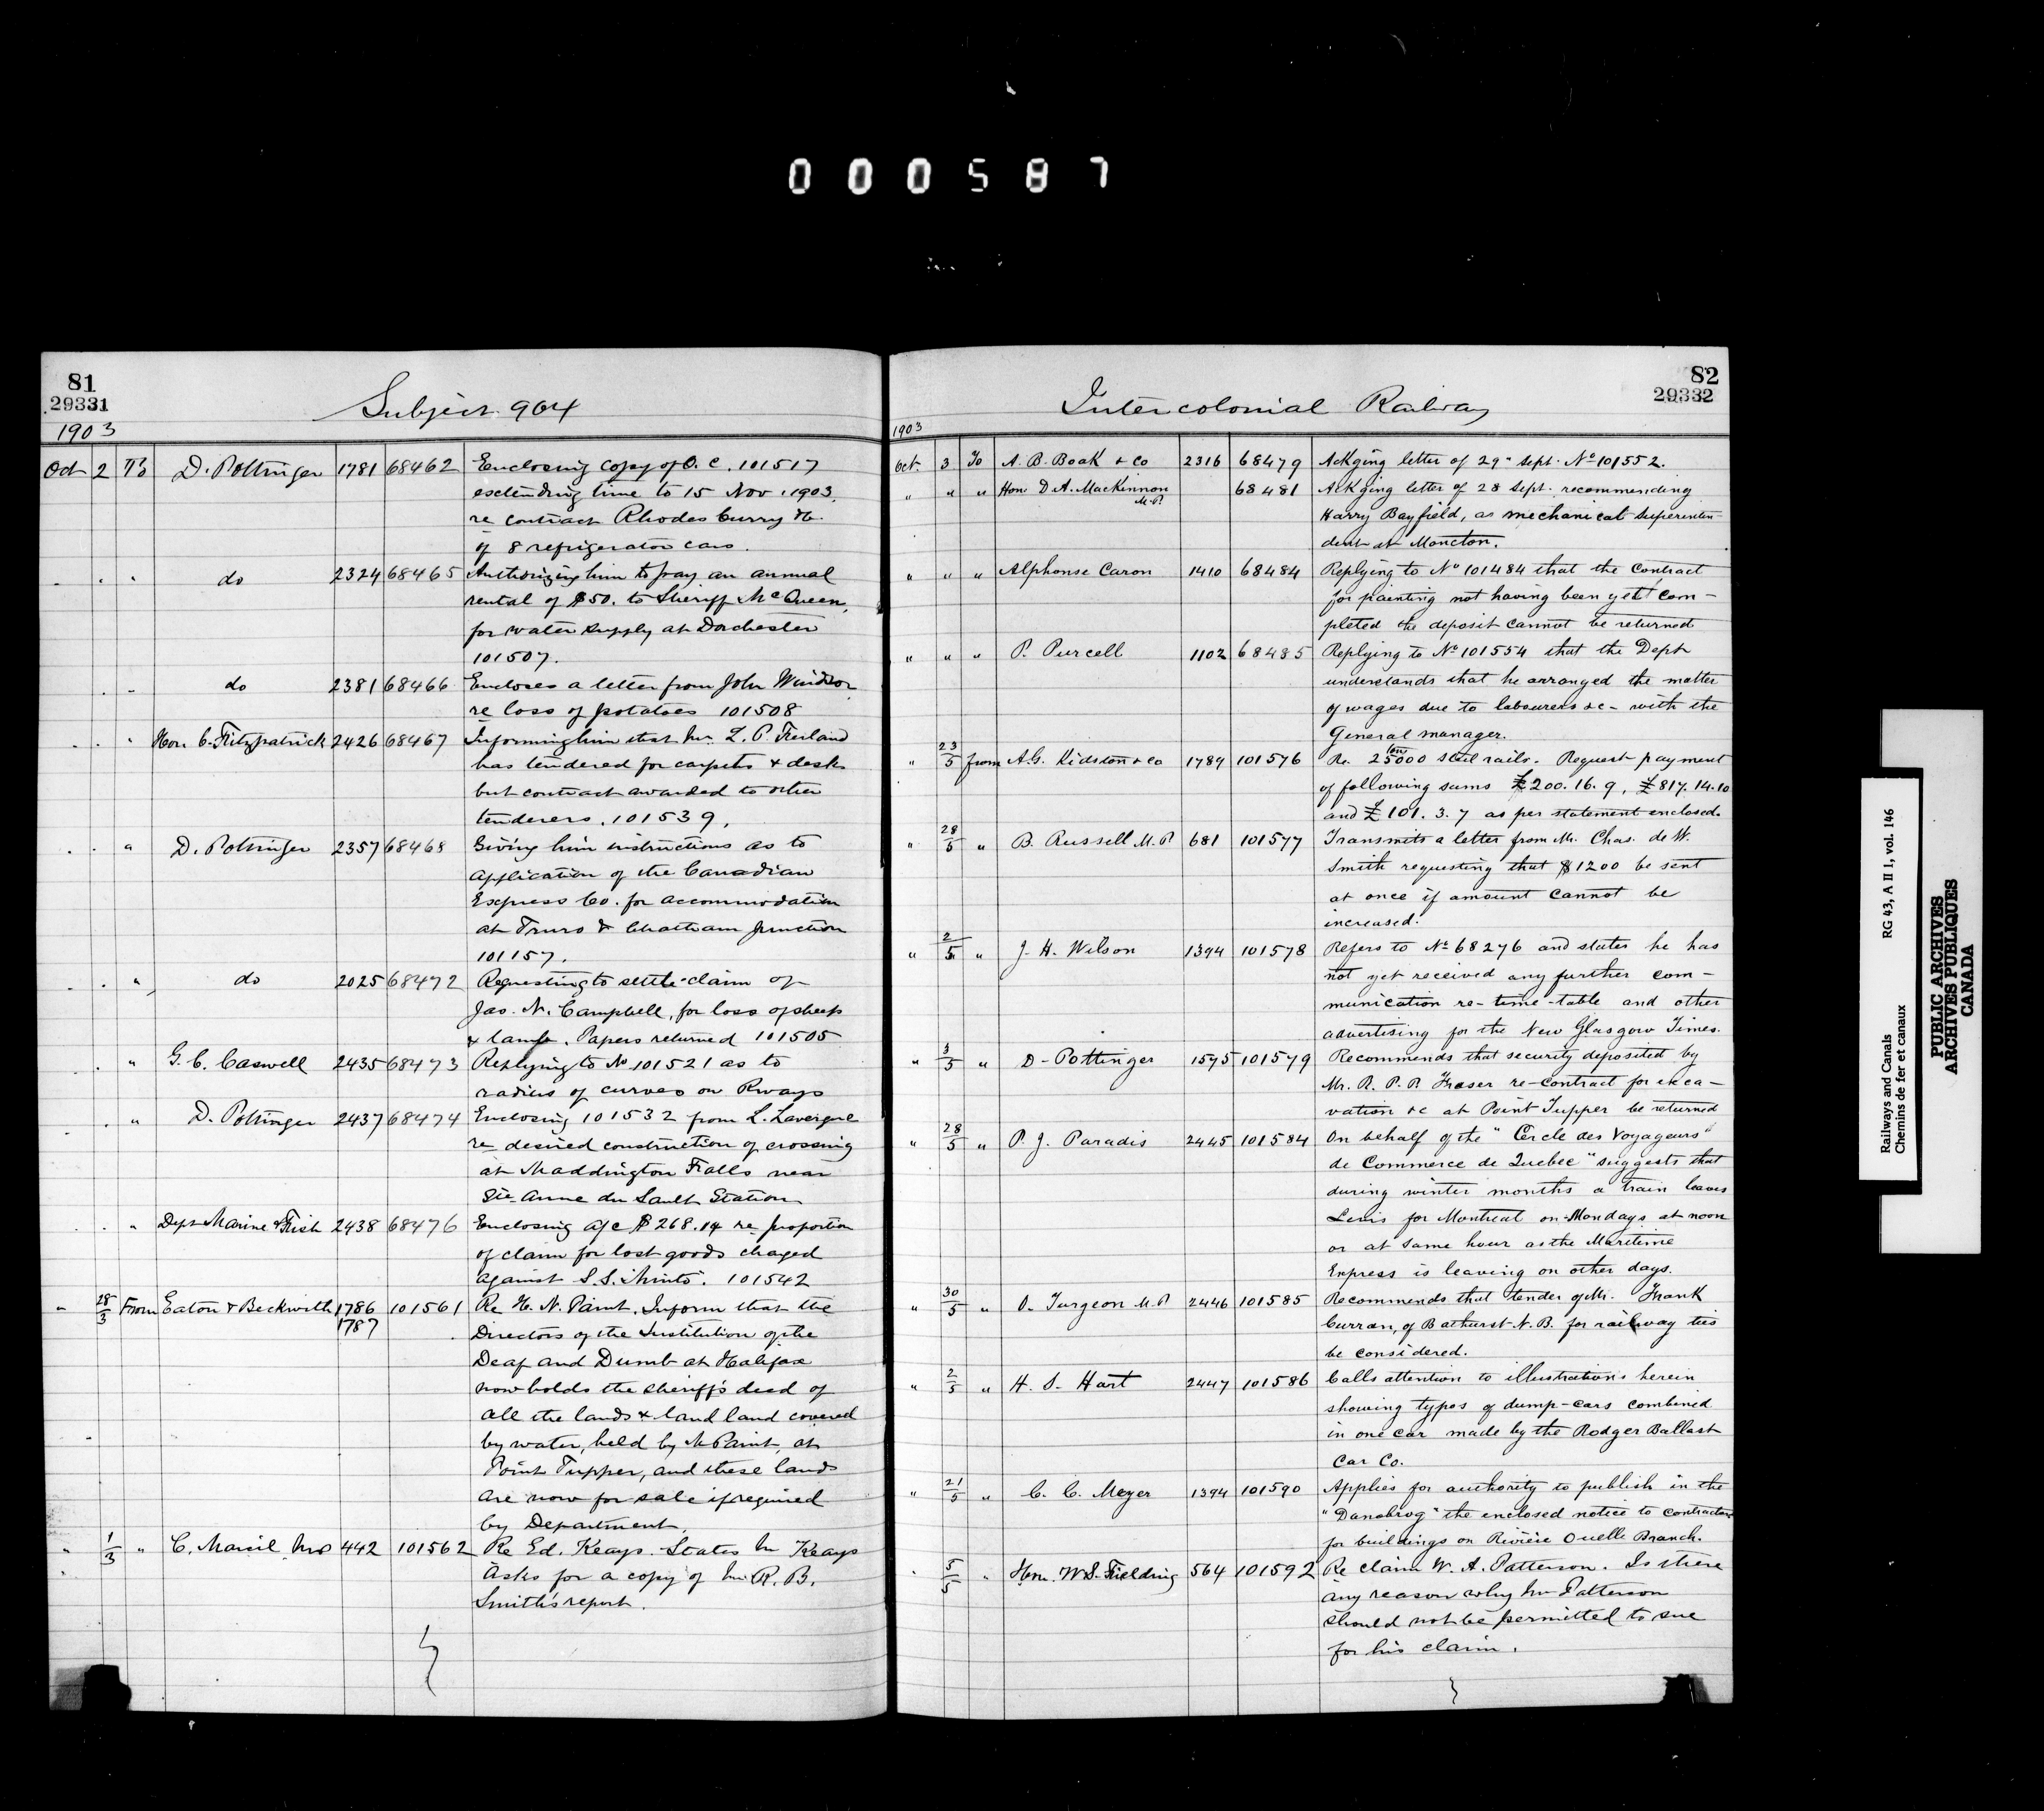 000587
81
29331
Subject 964
1903
Oct 2 To D. Pottinger 1781 68462 Enclosing copy of O. C. 101517
extending time to 15 Nov. 1903.
re contract Rhodes Curry &c.
of 8 refrigerator cars.
" " " do 2324 68465 Authorizing him to pay an annual
rental of $50. to Sheriff McQueen,
for water supply at Dorchester
101507.
" " do 2381 68466 Encloses a letter from John Windsor
re loss of potatoes 101508
" " " Hon. C. Fitzpatrick 2426 68467 Informing him that Mr. L. P.
has tendered for carpets & desks
but contract awarded to other
tenderers. 101539.
" " " D. Pottinger 2357 68468 Giving him instructions as to
application of the Canadian
Express Co. for accommodation
at Truro & Chatham Junction
101157.
" " " do 2025 68472 Requesting to settle claim of
Jas. N. Campbell, for loss of sheep
& lamb. Papers returned 101505
" " G. C. Caswell 2435 68473 Replying to No 101521 as to
radius of curves on Rways
" " D. Pottinger 2437 68474 Enclosing 101532 from L. Lavergne
re desired construction of crossing
at Maddington Falls near
Ste Anne du Sault Station
" " Dept Marine & Fish 2438 68476 Enclosing a/c $268.14 re proportion
of claim for lost goods charged
against S.S. "Minto". 101542
" 28/3 From Eaton & Beckwith 1786 101561 Re H. N. Paint. Inform that the
1787 Directors of the Institution of the
Deaf and Dumb at Halifax
now holds the sheriff's deed of
all the lands & land land covered
by water, held by Mr Paint, at
Point Tupper, and these lands
are now for sale if required
by Department.
" 1/3 " C. Marcil M.P. 442 101562 Re Ed. Keays. States Mr Keays
Asks for a copy of Mr. R. B.
Smith's report.
82
29332
Intercolonial Railway
1903
Oct. 3 To A. B. Boak & Co 2316 68479 Ackging letter of 29" Sept. No 101552.
" " " Hon D. A. MacKinnon 68481 Ackging letter of 28 Sept. recommending
M.P. Harry Bayfield, as mechanical superinten-
dent at Moncton.
" " " Alphonse Caron 1410 68484 Replying to No 101484 that the contract
for painting not having been yet com-
pleted the deposit cannot be returned
" " " P. Purcell 1102 68485 Replying to No 101554 that the Dept
understands that he arranged the matter
of wages due to labourers &c - with the
General manager.
" 23/5 from A. G. Kidston & Co 1789 101576 Re. 25000 tons steel rails. Request payment
of following sums £200.16.9, £817.14.10
and £101.3.7 as per statement enclosed.
" 28/5 " B. Russell M.P 681 101577 Transmits a letter from Mr. Chas. de W.
Smith requesting that $1200 be sent
at once if amount cannot be
increased.
" 2/5 " J. H. Wilson 1394 101578 Refers to No 68276 and states he has
not yet received any further com-
munication re-time-table and other
advertising for the New Glasgow Times.
" 3/5 " D. Pottinger 1575 101579 Recommends that security deposited by
Mr. R. P. R. Fraser re-contract for exca-
vation &c at Point Tupper be returned
" 28/5 " P. J. Paradis 2445 101584 On behalf of the "Cercle des Voyageurs"
de Commerce de Quebec" suggests that
during winter months a train leaves
Levis for Montreal on Mondays at noon
or at same hour as the Maritime
Express is leaving on other days.
" 30/5 " O. Turgeon M.P 2446 101585 Recommends that tender of Mr. Frank
Curran, of Bathurst N.B. for railway ties
be considered.
" 2/5 " H. S. Hart 2447 101586 Calls attention to illustrations herein
showing types of dump-cars combined
in one car made by the Rodger Ballast
Car Co.
" 21/5 " C. C. Meyer 1394 101590 Applies for authority to publish in the
"Danebrog" the enclosed notice to contractors
for buildings on Rivière Ouelle Branch.
" 5/5 " Hon. W. S. Fielding 564 101592 Re claim W. A. Patterson. Is there
any reason why Mr Patterson
should not be permitted to sue
for his claim.
Railways and Canals RG 43, A II 1, vol. 146
Chemins de fer et canaux
PUBLIC ARCHIVES
ARCHIVES PUBLIQUES
CANADA